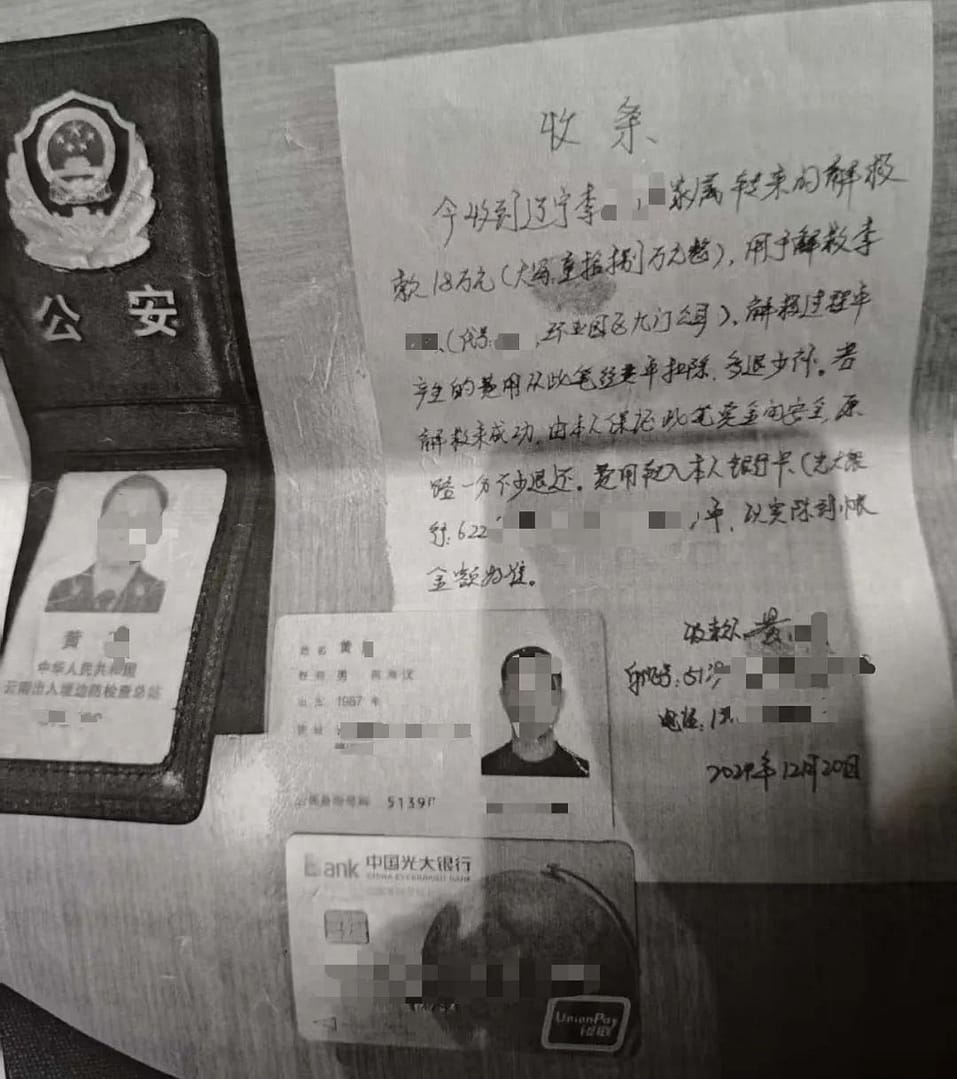 公安
黄
中华人民共和国
云南出入境边防检查总站
收条
今收到辽宁李 家属转来的解救
款18万元(大写:壹拾捌万元整),用于解救李
(代号: ,环业园区九门公司),解救过程中
产生的费用从此笔经费中扣除,多退少补。若
解救未成功,由本人保证此笔资金的安全,原
路一分不少退还。费用转入本人银行卡(光大银
行:622 )中,以实际到帐
金额为准。
收款人:黄
身份证号:513
电话:1
2024年12月20日
姓名 黄
性别 男 民族 汉
出生 1987 年
住址
公民身份号码 5139
Bank 中国光大银行
CHINA EVERBRIGHT BANK
UnionPay
银联